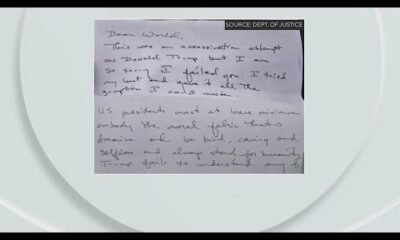 SOURCE: DEPT. OF JUSTICE
Dear World,
This was an assassination attempt
on Donald Trump but I am
so sorry I failed you. I tried
my best and gave it all the
gumption I could muster.
U.S. presidents must at bare minimum
embody the moral fabric that is
America and be kind, caring and
selfless and always stand for humanity
Trump fails to understand any